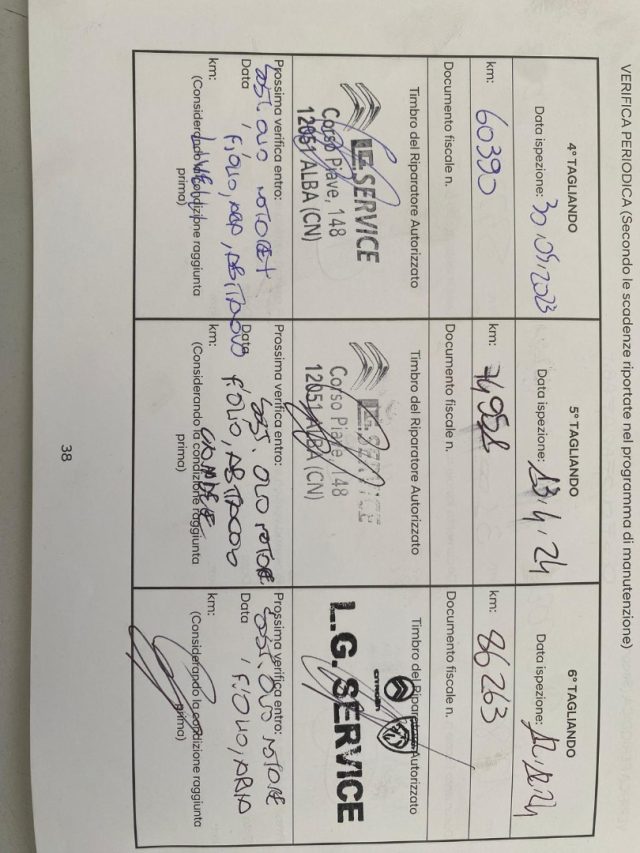 VERIFICA PERIODICA (Secondo le scadenze riportate nel programma di manutenzione)
4° TAGLIANDO
Data ispezione: 30.05.2023
km: 60390
Documento fiscale n.
Timbro del Riparatore Autorizzato
L.G. SERVICE
Corso Piave, 148
12051 ALBA (CN)
Prossima verifica entro:
SOST. OLIO MOTORE +
Data
FOLIO, ARIA, ABITACOLO
km:
(Considerando la condizione raggiunta
prima)
5° TAGLIANDO
Data ispezione: 13.4.24
km: 74952
Documento fiscale n.
Timbro del Riparatore Autorizzato
L.G. SERVICE
Corso Piave, 148
12051 ALBA (CN)
Prossima verifica entro:
SOST. OLIO MOTORE
Data
FOLIO, ABITACOLO
km:
(Considerando la condizione raggiunta
prima)
6° TAGLIANDO
Data ispezione: 12.12.24
km: 86263
Documento fiscale n.
Timbro del Riparatore Autorizzato
CITROËN
L.G. SERVICE
Prossima verifica entro:
SOST. OLIO MOTORE
Data
, FIOLIO, ARIA
km:
(Considerando la condizione raggiunta
prima)
38